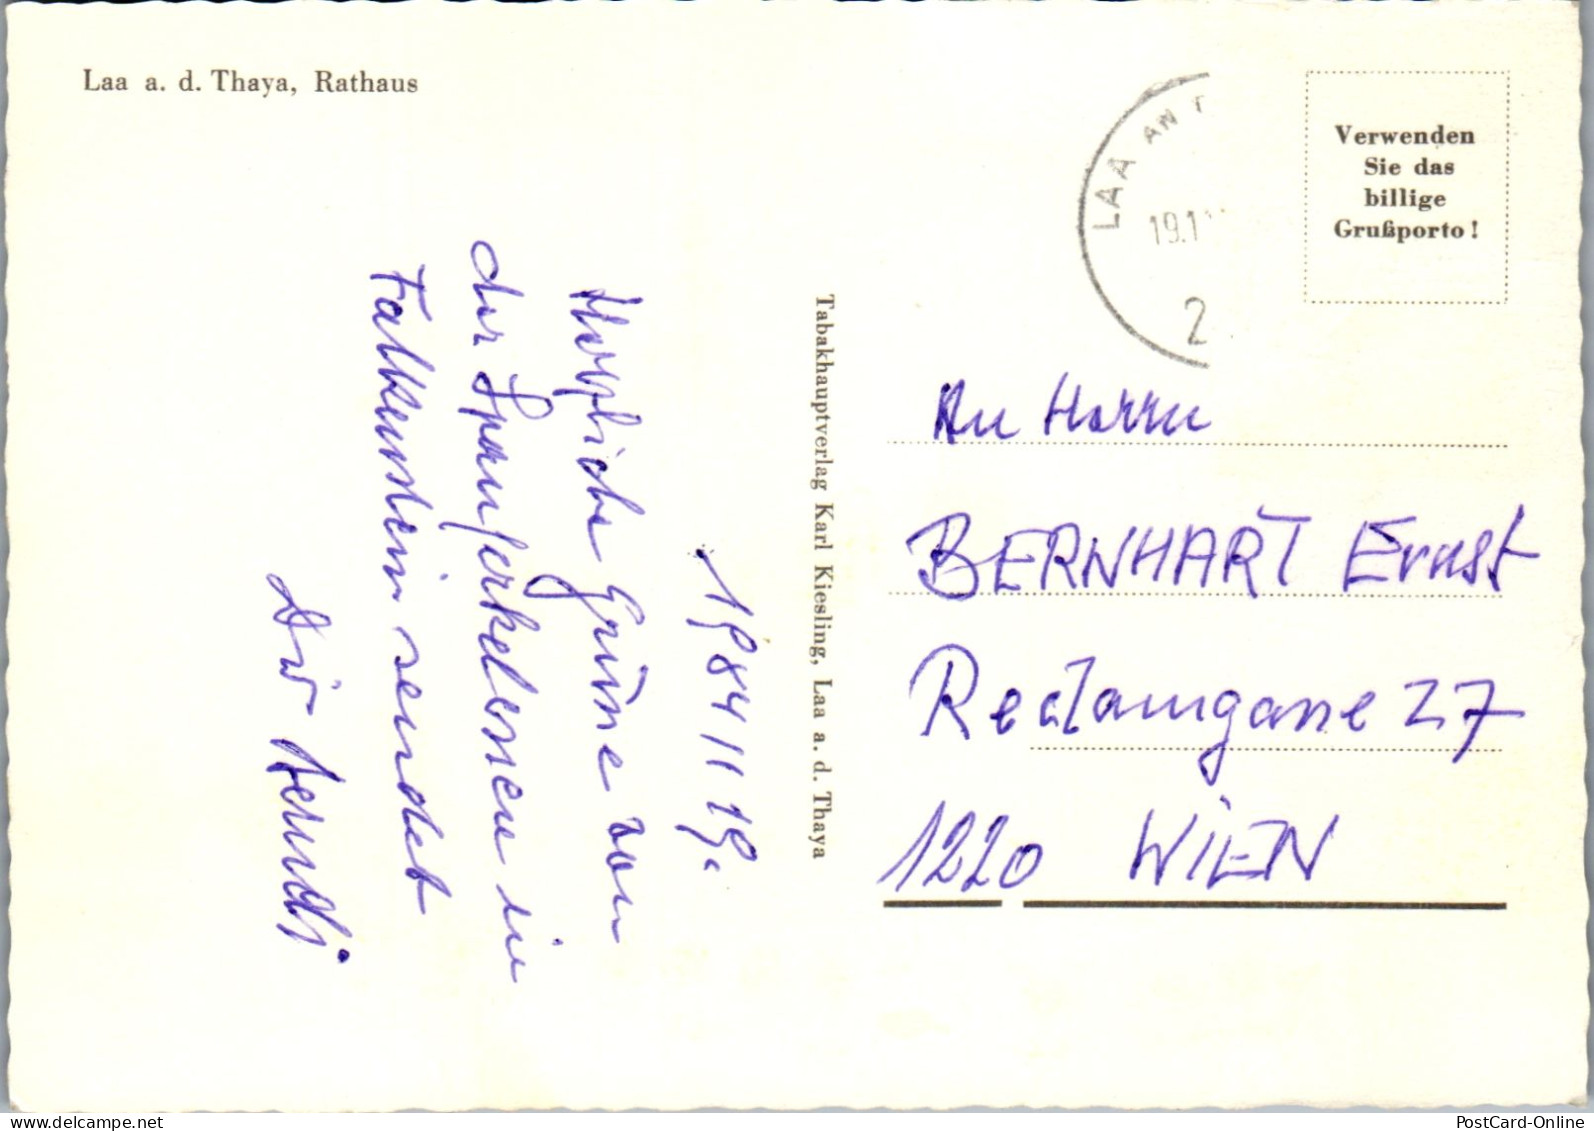 Laa a. d. Thaya, Rathaus
LAA AN T
19.1
2
Verwenden
Sie das
billige
Grußporto!
Tabakhauptverlag Karl Kiesling, Laa a. d. Thaya
1984 11 19.
Herzliche Grüße von
der Spanferkelessen in
Falkenstein sendet
Dir
An Herrn
BERNHART Ernst
Reclamgasse 27
1220 WIEN
PostCard-Online